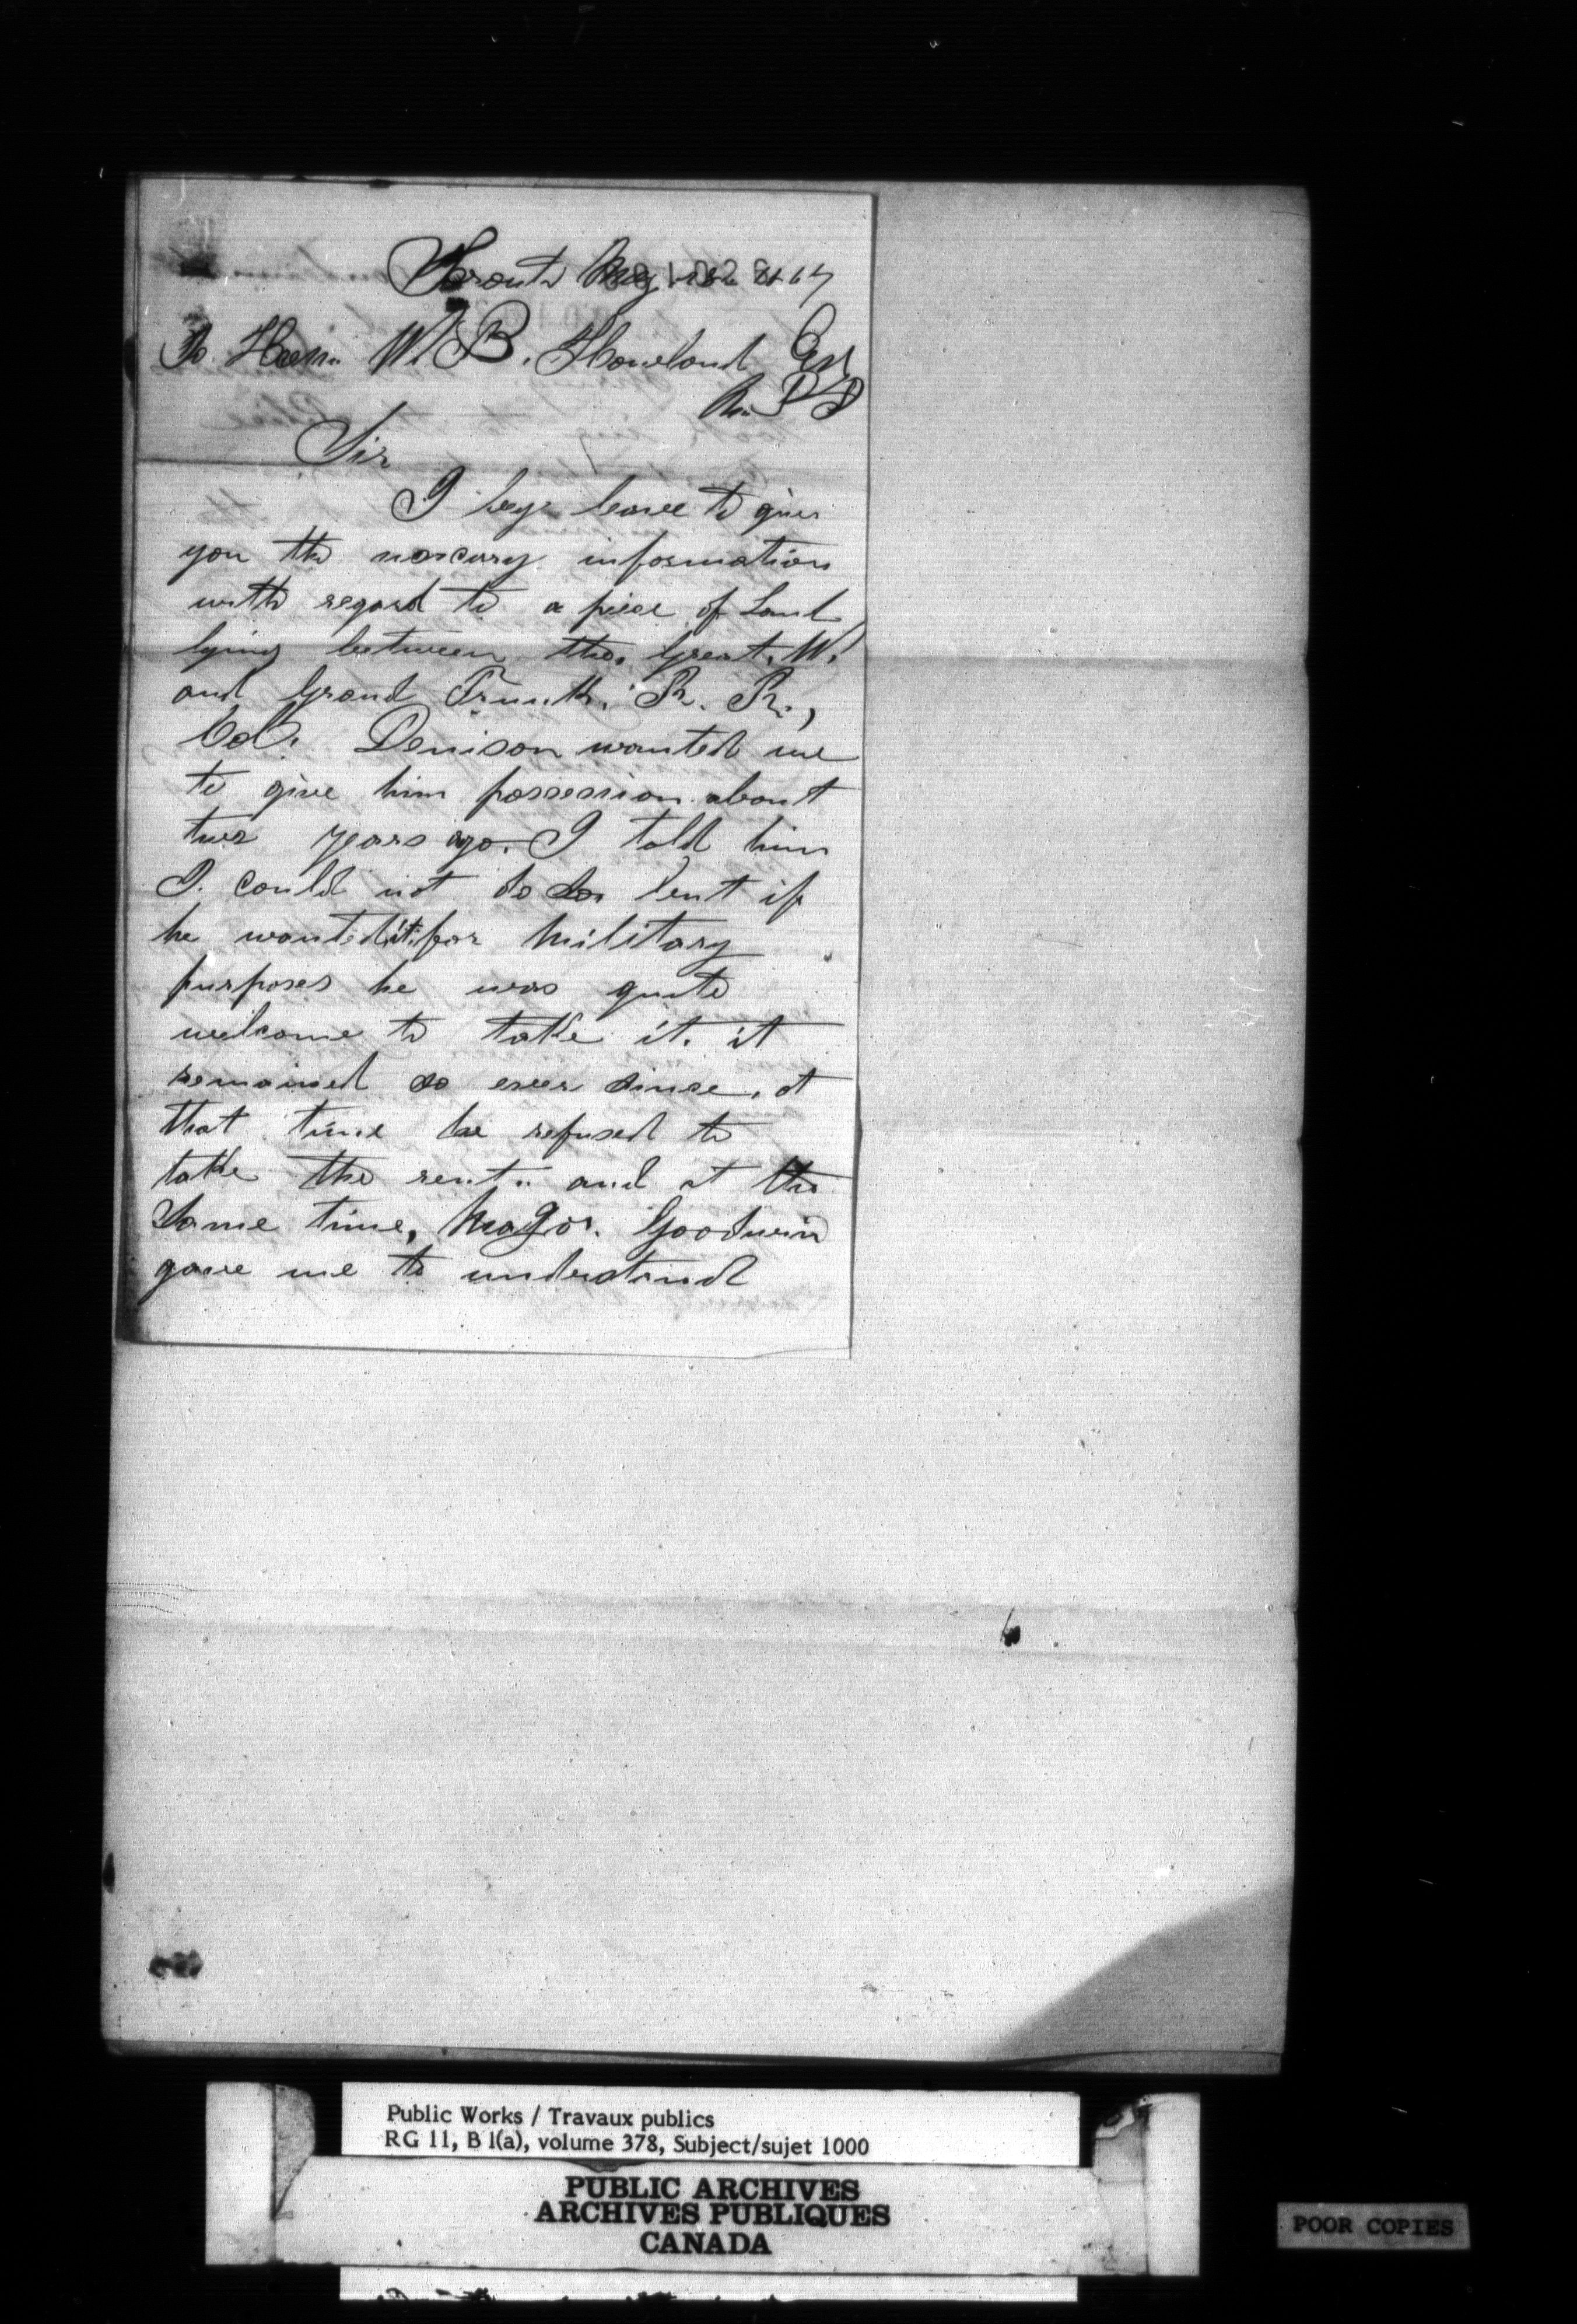 Toronto May 67
To Hon. W. B. Howland Esq
M. P P
Sir
I beg leave to give
you the nescary information
with regard to a piece of Land
lying between the, Great. W.
and Grand Trunk. R. R.,
Col. Denison wanted me
to give him possession about
two years ago. I told him
I. could not do so but if
he wanted it for Military
purposes he was quite
welcome to take it. it
remained so ever since. at
that time he refused to
take the rent.. and at the
same time, Major. Goodwin
gave me to understand
Public Works / Travaux publics
RG 11, B 1(a), volume 378, Subject/sujet 1000
PUBLIC ARCHIVES
ARCHIVES PUBLIQUES
CANADA
POOR COPIES